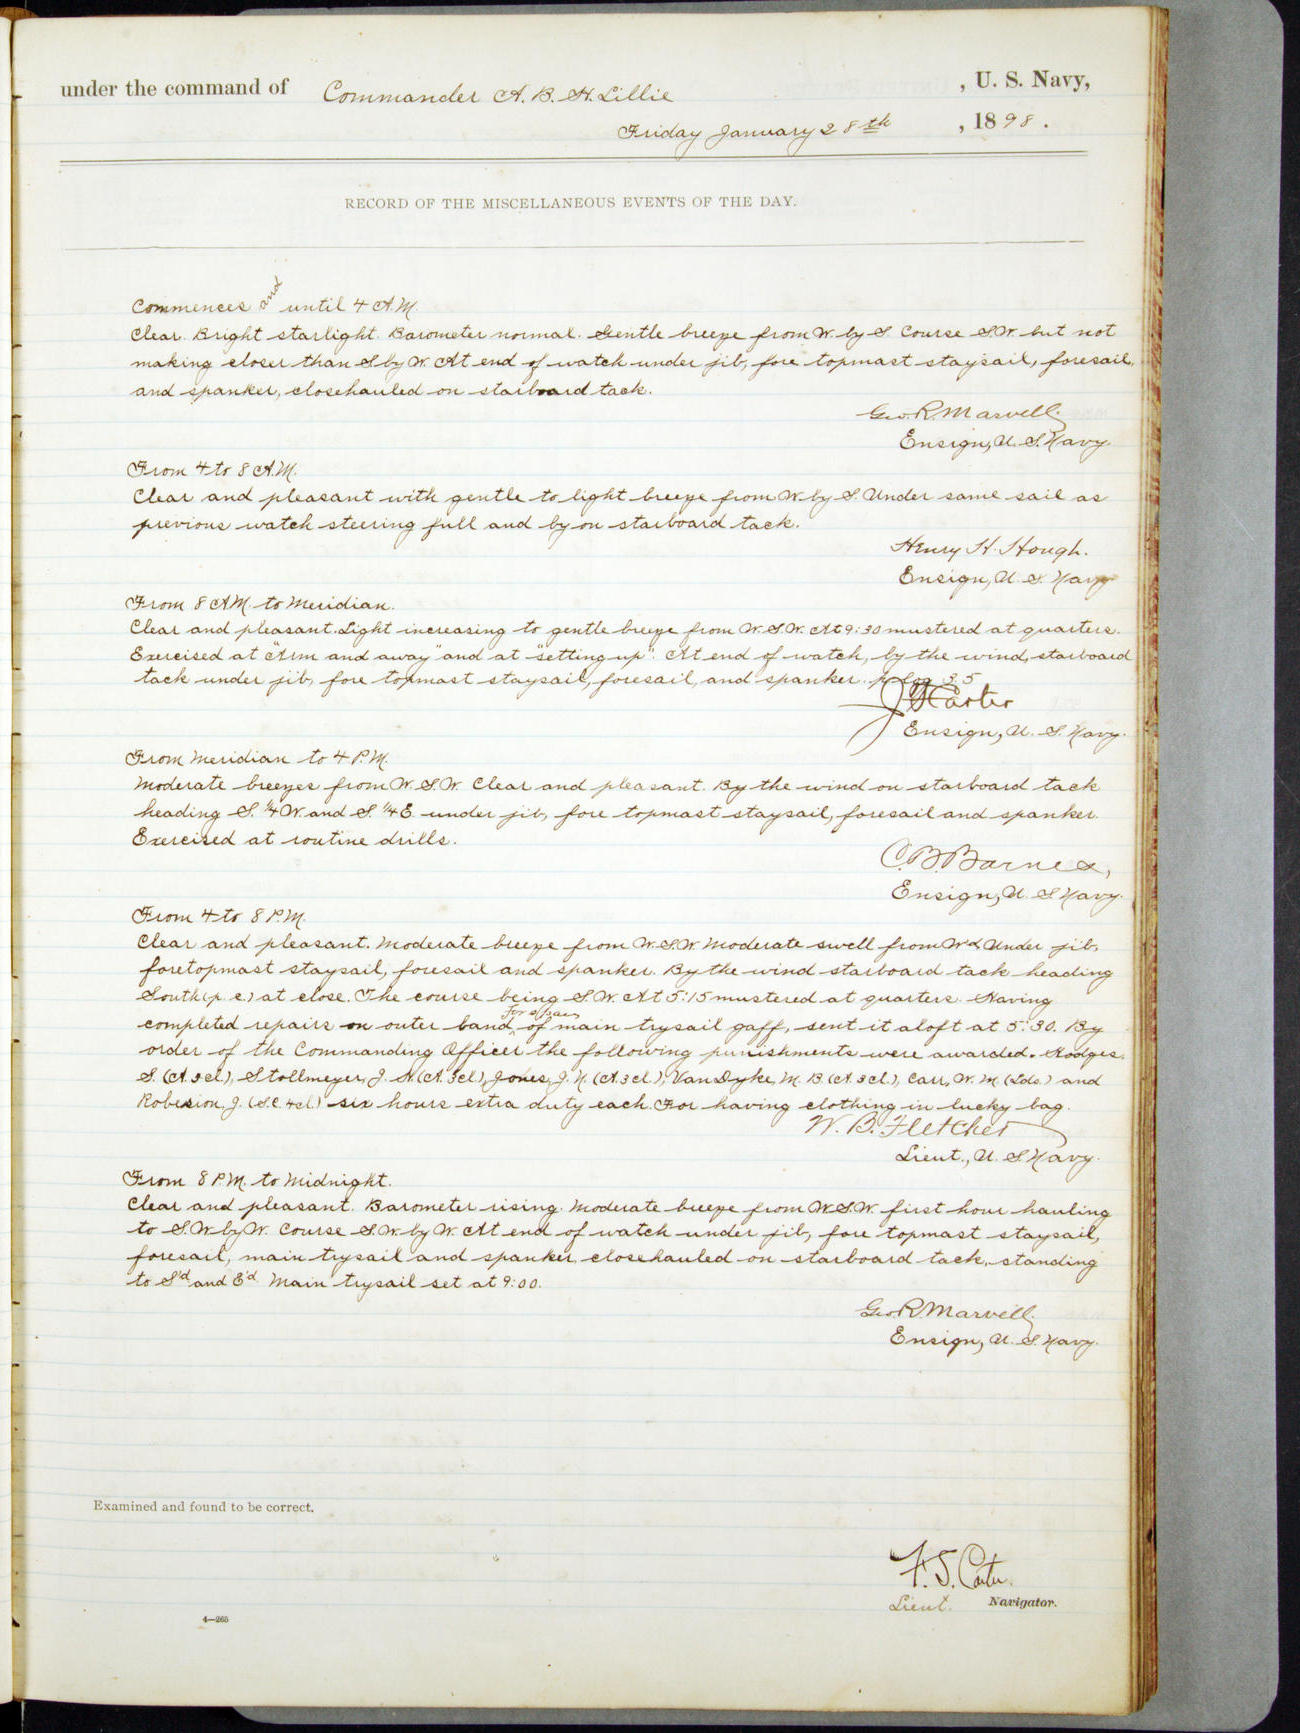 under the command of Commander A. B. H. Lillie, U. S. Navy,
Friday January 28th, 1898.
RECORD OF THE MISCELLANEOUS EVENTS OF THE DAY.
Commences and until 4 A.M.
Clear. Bright starlight. Barometer normal. Gentle breeze from W. by S. Course S.W. but not
making closer than S. by W. At end of watch under jib, fore topmast staysail, foresail,
and spanker, closehauled on starboard tack.
Geo. R. Marvell.
Ensign, U. S. Navy.
From 4 to 8 A.M.
Clear and pleasant with gentle to light breeze from W. by S. Under same sail as
previous watch steering full and by on starboard tack.
Henry H. Hough.
Ensign, U. S. Navy
From 8 A.M. to Meridian.
Clear and pleasant. Light increasing to gentle breeze from W.S.W. At 9:30 mustered at quarters.
Exercised at "Arm and away" and at "setting up". At end of watch, by the wind, starboard
tack under jib, fore topmast staysail, foresail, and spanker. p. log 3.5
Carter
Ensign, U. S. Navy.
From Meridian to 4 P.M.
Moderate breezes from W.S.W. Clear and pleasant. By the wind on starboard tack
heading S. 1/4 W. and S. 1/4 E. under jib, fore topmast staysail, foresail and spanker.
Exercised at routine drills.
C. B. Barnes,
Ensign, U. S. Navy.
From 4 to 8 P.M.
Clear and pleasant. Moderate breeze from W.S.W. Moderate swell from Wd. Under jib,
foretopmast staysail, foresail and spanker. By the wind starboard tack heading
South (p. c.) at close. The course being S.W. At 5:15 mustered at quarters. Having
completed repairs on outer band of main trysail gaff, sent it aloft at 5:30. By
order of the Commanding Officer the following punishments were awarded. Hodges,
S. (A. 3 cl.), Stollmeyer, J. H. (A. 3 cl.), Jones, J. N. (A. 3 cl.), Van Dyke, M. B. (A. 3 cl.), Carr, W. M. (Lds.) and
Roberson, J. (S.C. 4 cl.) six hours extra duty each. For having clothing in lucky bag.
W. B. Fletcher
Lieut., U. S. Navy.
From 8 P.M. to Midnight.
Clear and pleasant. Barometer rising. Moderate breeze from W.S.W. first hour hauling
to S.W. by W. Course S.W. by W. At end of watch under jib, fore topmast staysail,
foresail, main trysail and spanker closehauled on starboard tack, standing
to S'd and E'd. Main trysail set at 9:00.
Geo. R. Marvell.
Ensign, U. S. Navy.
Examined and found to be correct.
F. S. Carter.
Lieut. Navigator.
4—265